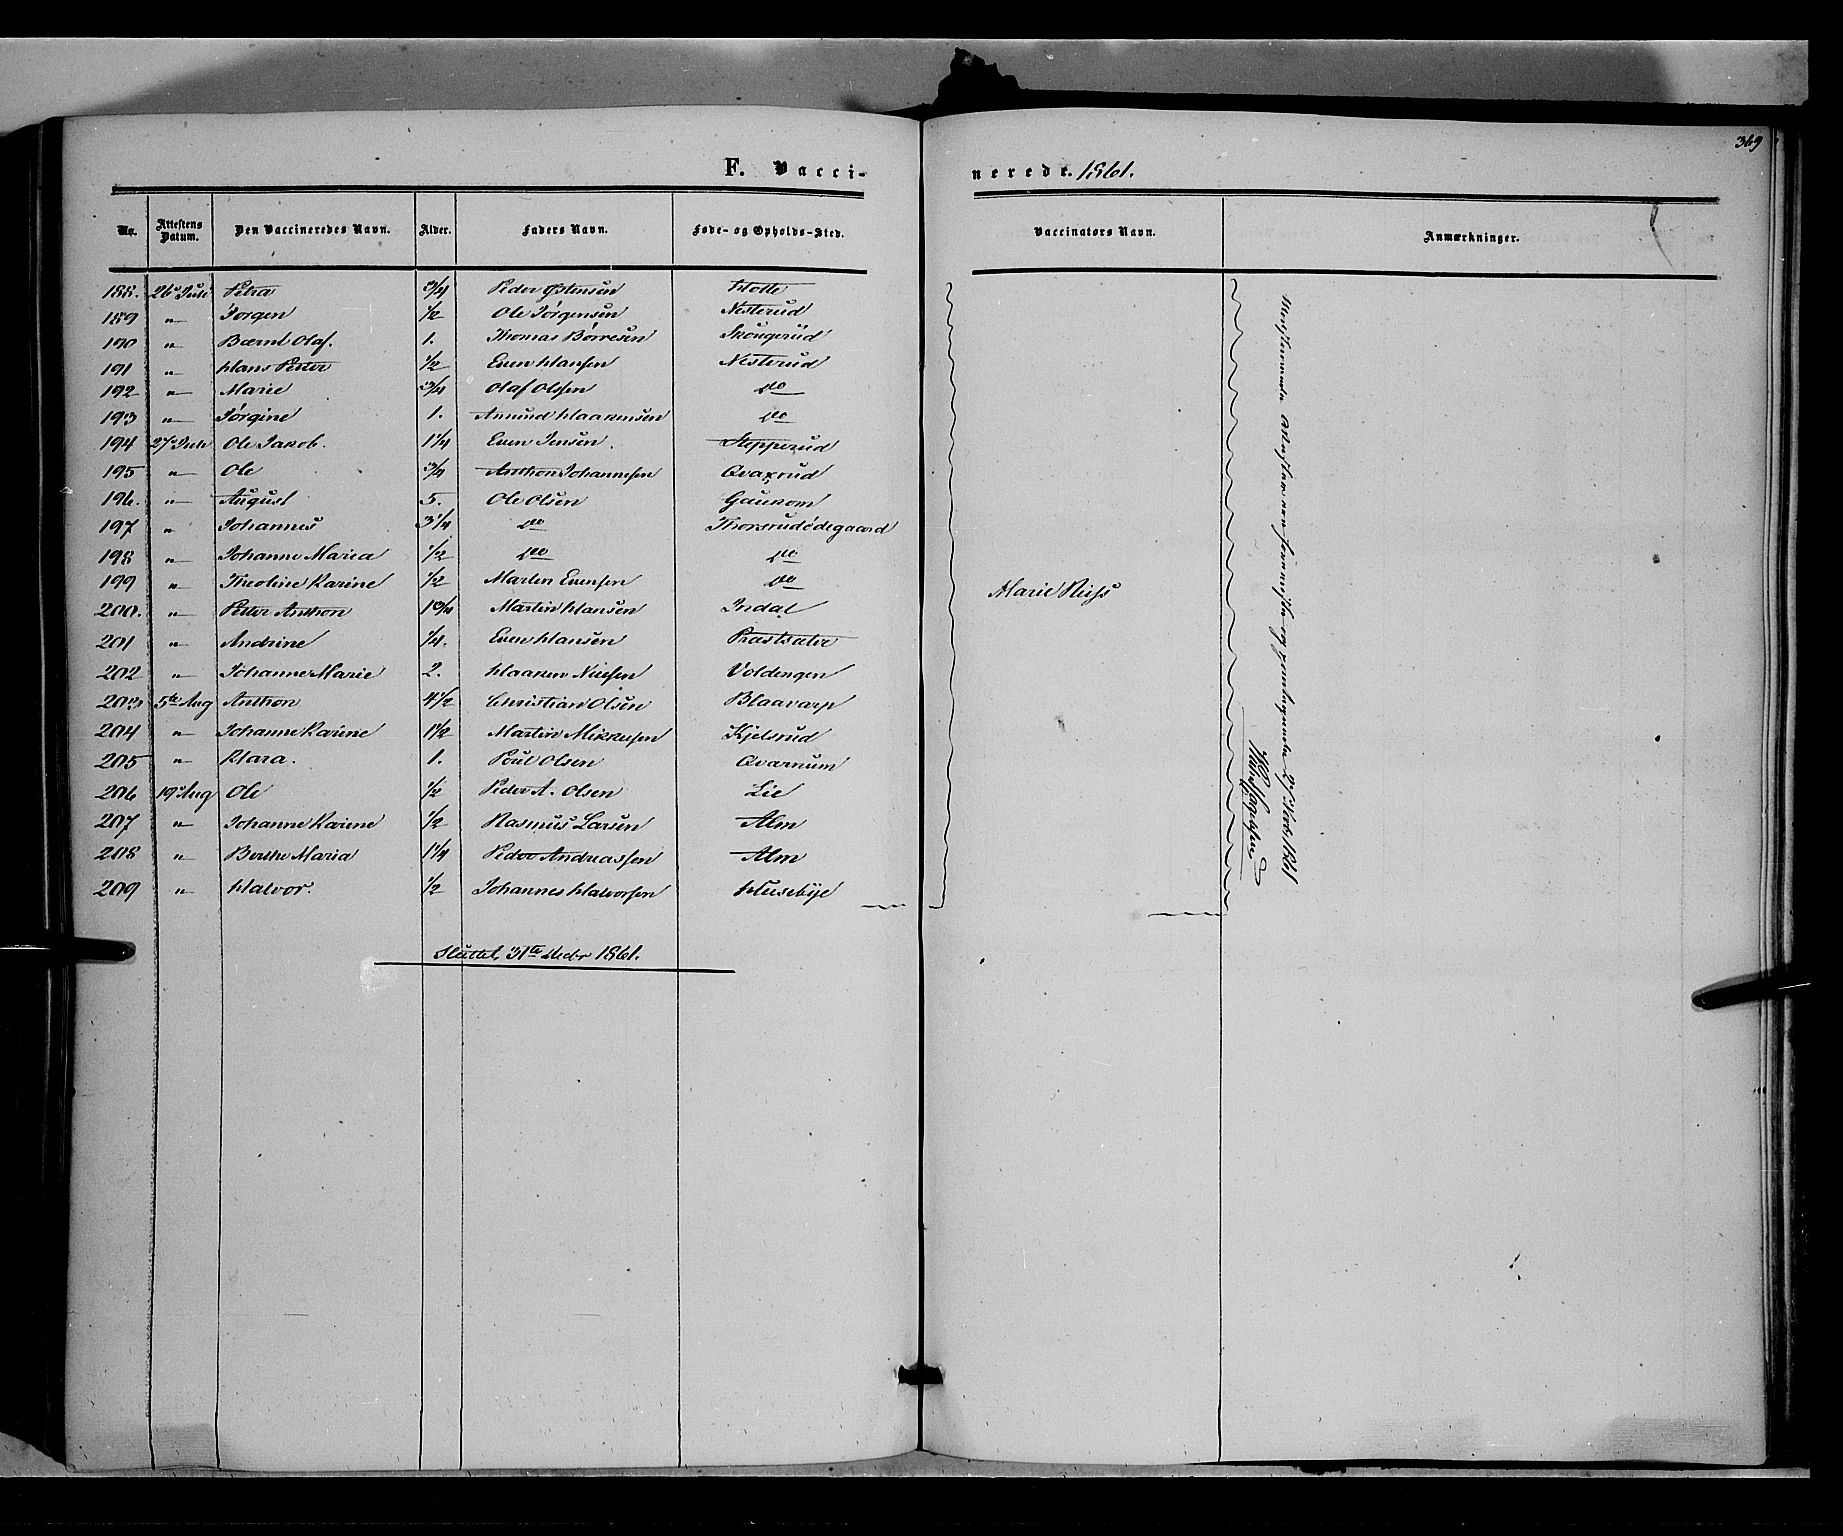 369
F. Vacci- nerede. 1861.
Nr. Attestens Datum. Den Vaccineredes Navn. Alder. Faders Navn. Føde- og Opholds-Sted. Vaccinators Navn. Anmærkninger.
188. 26 Juli Petra 3/4 Peder Østensen
189 " Jørgen 1/2 Ole Jørgensen Nesterud
190 " Bernt Olaf. 1. Thomas Børresen Skougerud
191 " Hans Peter 1/2 Even Hansen Nesterud
192 " Marie 3/4 Olaf Olssen do
193 " Jørgine 1. Amund Haakensen do
194 27 Juli Ole Jakob. 1 1/4 Even Jensen Stepperud
195 " Ole 3/4 Anthon Johannesen
196. " August 5. Ole Olsen Gaukom
197 " Johannes 3 1/4 do Thorsrudødegaard
198 " Johanne Maria 1/2 do do
199 " Theoline Karine 1/2 Martin Evensen do
200. " Peter Anthon Martin Hansen Indal
201 " Andrine 1/4. Even Hansen
202 " Johanne Marie 2. Haaken Nielsen Voldengen
203 5te Aug Anthon 4 1/2 Christian Olsen Blaavarp
204 " Johanne Karine 1 1/2 Martin Mikkelsen Kjelsrud
205 " Klara. 1. Poul Olsen Qvarnum
206 19 Aug Ole 1/2 Peder A. Olsen Lie
207 " Johanne Karine 1/2 Rasmus Larsen Alm
208 " Berthe Maria 1 1/4 Peder Andreassen Alm
209 " Halvor. 1/2 Johannes Halvorsen Husebye
Marie
Sluttet 31te Decbr 1861.